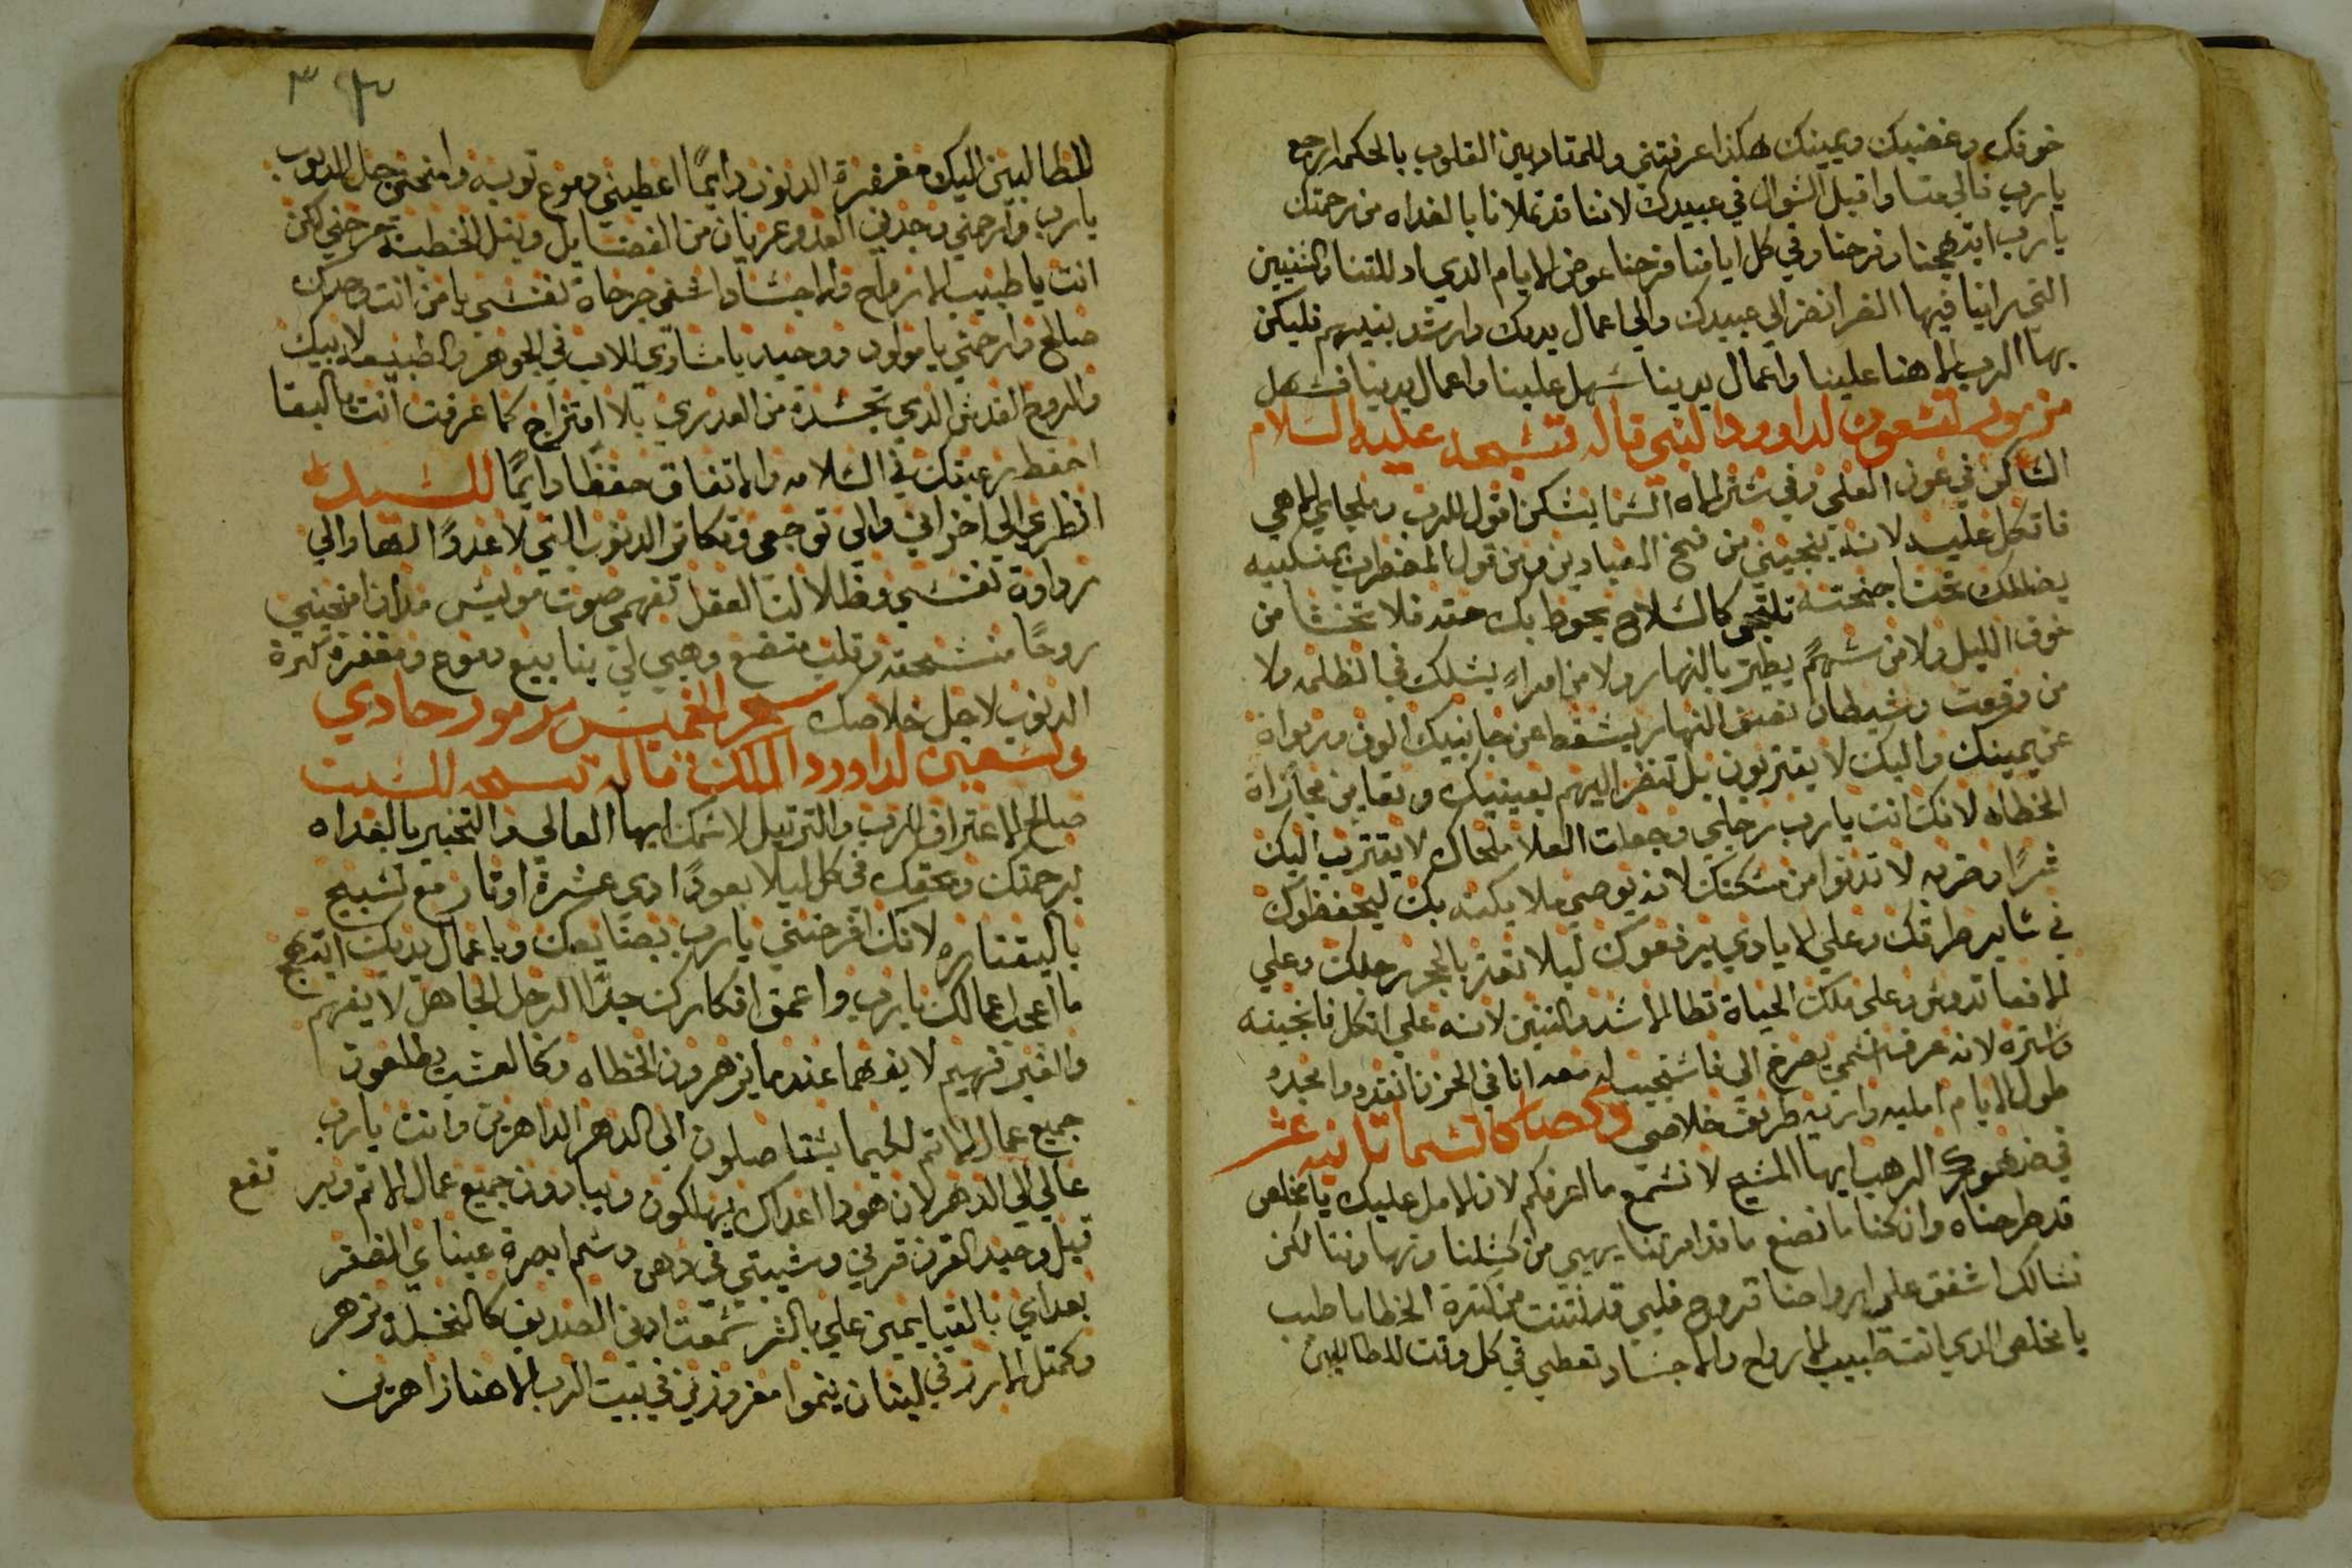 خوفك وغضبك ويمينك هكذا عرفتني وللمتادبين القلوب بالحكمه ارجع
يارب فالي متا واقبل السوال في عبيدك لاننا قد تملانا بالغداه من رحمتك
يارب ابتهجنا وفرحنا وفي كل ايامنا فرحنا عوض الايام الدي ادللتنا والسنين
التي راينا فيها الضر انضر الي عبيدك والي اعمال يديك وارشد بنيهم فليكن
بها الرب الاهنا علينا واعمال يدينا سهل علينا واعمال يدينا فسهل
مزمور تسعون لداوود النبي قاله تسبحه عليه السلام
الساكن في عون العلي وفي ستر الاه السما يسكن اقول للرب وملجاي الاهي
فاتكل عليه لانه ينجيني من فخ الصيادين ومن قول المضطرب بمنكبيه
يضللك تحت اجنحته تلتجي كالسلاح يحوط بك حقه فلا تخشا من
خوف الليل ولا من سهم يطير بالنهار ولا من امراه يسلك في الظلمه ولا
من وقعت وشيطان نصف النهار يسقط عن جانبيك الوف وربواة
عن يمينك واليك لا يقتربون بل تنضر اليهم بعينيك وتعاين مجازاة
الخطاه لانك انت يارب رجاي وجعلت العلا ملجاك لا يقترب اليك
شرًا وضربه لا تدنوا من مسكنك لانه يوصي ملايكته بك ليحفظوك
في ساير طرقك وعلي الايادي يرفعوك ليلا تعثر بالحجر رجلك وعلي
الافعا تدوس وعلي ملك الحياة تطا الاسد والتنين لانه علي اتكل فانجيه
واستره لانه عرف اسمي يصرخ الي فاستجيب له معه انا في الحزن انقده وامجده
طول الايام امليه واريه طريق خلاصي كاتسما تانيه عشر
الدهب ايها المسيح لا نسمع ما اعرفكم لان الامل عليك يا مخلصي
قد طرحناه وان كنا ما نصنع ما قد امرتنا يهيي من كسلنا وتهاوننا لكن
نسالك اشفق علي ارواحنا قروح قلبي قد نتنت من كترة الخطايا طبيب
يا مخلصي الدي انت طبيب الارواح والاجساد تعطي في كل وقت للطالبين
للطالبين اليك مغفرة الدنوب دايمًا اعطيني دموع توبه وامنحني حل الدنوب
يارب وارحمني وجدني العدو عريان من الفضايل وبنبل الخطيه جرحني لكن
انت يا طبيب الارواح والاجساد اشفي جرحاة نفسي يا من انت وحدك
صالح وارحمني يا مولود ووحيد يا مساوي للاب في الجوهر والطبيعه لابيك
والروح القدس الدي تجسدة من العدري بلا امتزاج كما عرفت انت بالبقا
احفظ رعيتك في السلامه والاتفاق حفظًا دايمًا للسيده
انظري الي احزاني والي توجعي وتكاتر الدنوب التي لا عددًا لها والي
رداوة نفسي وظلالت العقل تفهمي صوت امنحيني
روحًا منسحقه وقلب متضع وهبي لي ينابيع دموع ومغفرة كترة
الدنوب لاجل خلاصك سحر الخميس مزمور حادي
وتسعين لداوود الملك قاله تسبحه للسبت
صالح الاعتراف للرب والترتيل لاسمك ايها العالي والتخبير بالغداه
برحمتك وبحقك في كل ليلا بعودًا دي عشرة اوتار مع تسبيح
بالقيتاره لانك افرحتني يارب بصنايعك وباعمال يديك ابتهج
ما اعجب اعمالك يارب واعمق افكارك جدًا الرجل الجاهل لا يفهم
والغير فهيم لا يفهما عند ما يزهرون الخطاه وكالعشب يطلعون
جميع عمال الاتم لكيما يستاصلون الي الدهر الداهرين وانت يارب
عالي الي الدهر لان هودا اعداك يهلكون ويبادون جميع عمال الاتم وير تفع
قبل وحيد القرن قرني وشيبتي في دهن دسم ابصرة عيناي الضفر
بعداي بالقيايمين علي بالشر سمعت ادني الصديق كالنخله يزهر
وكمتل الارز في لبنان ينموا مغروزين في بيت الرب الاهنا زاهرين